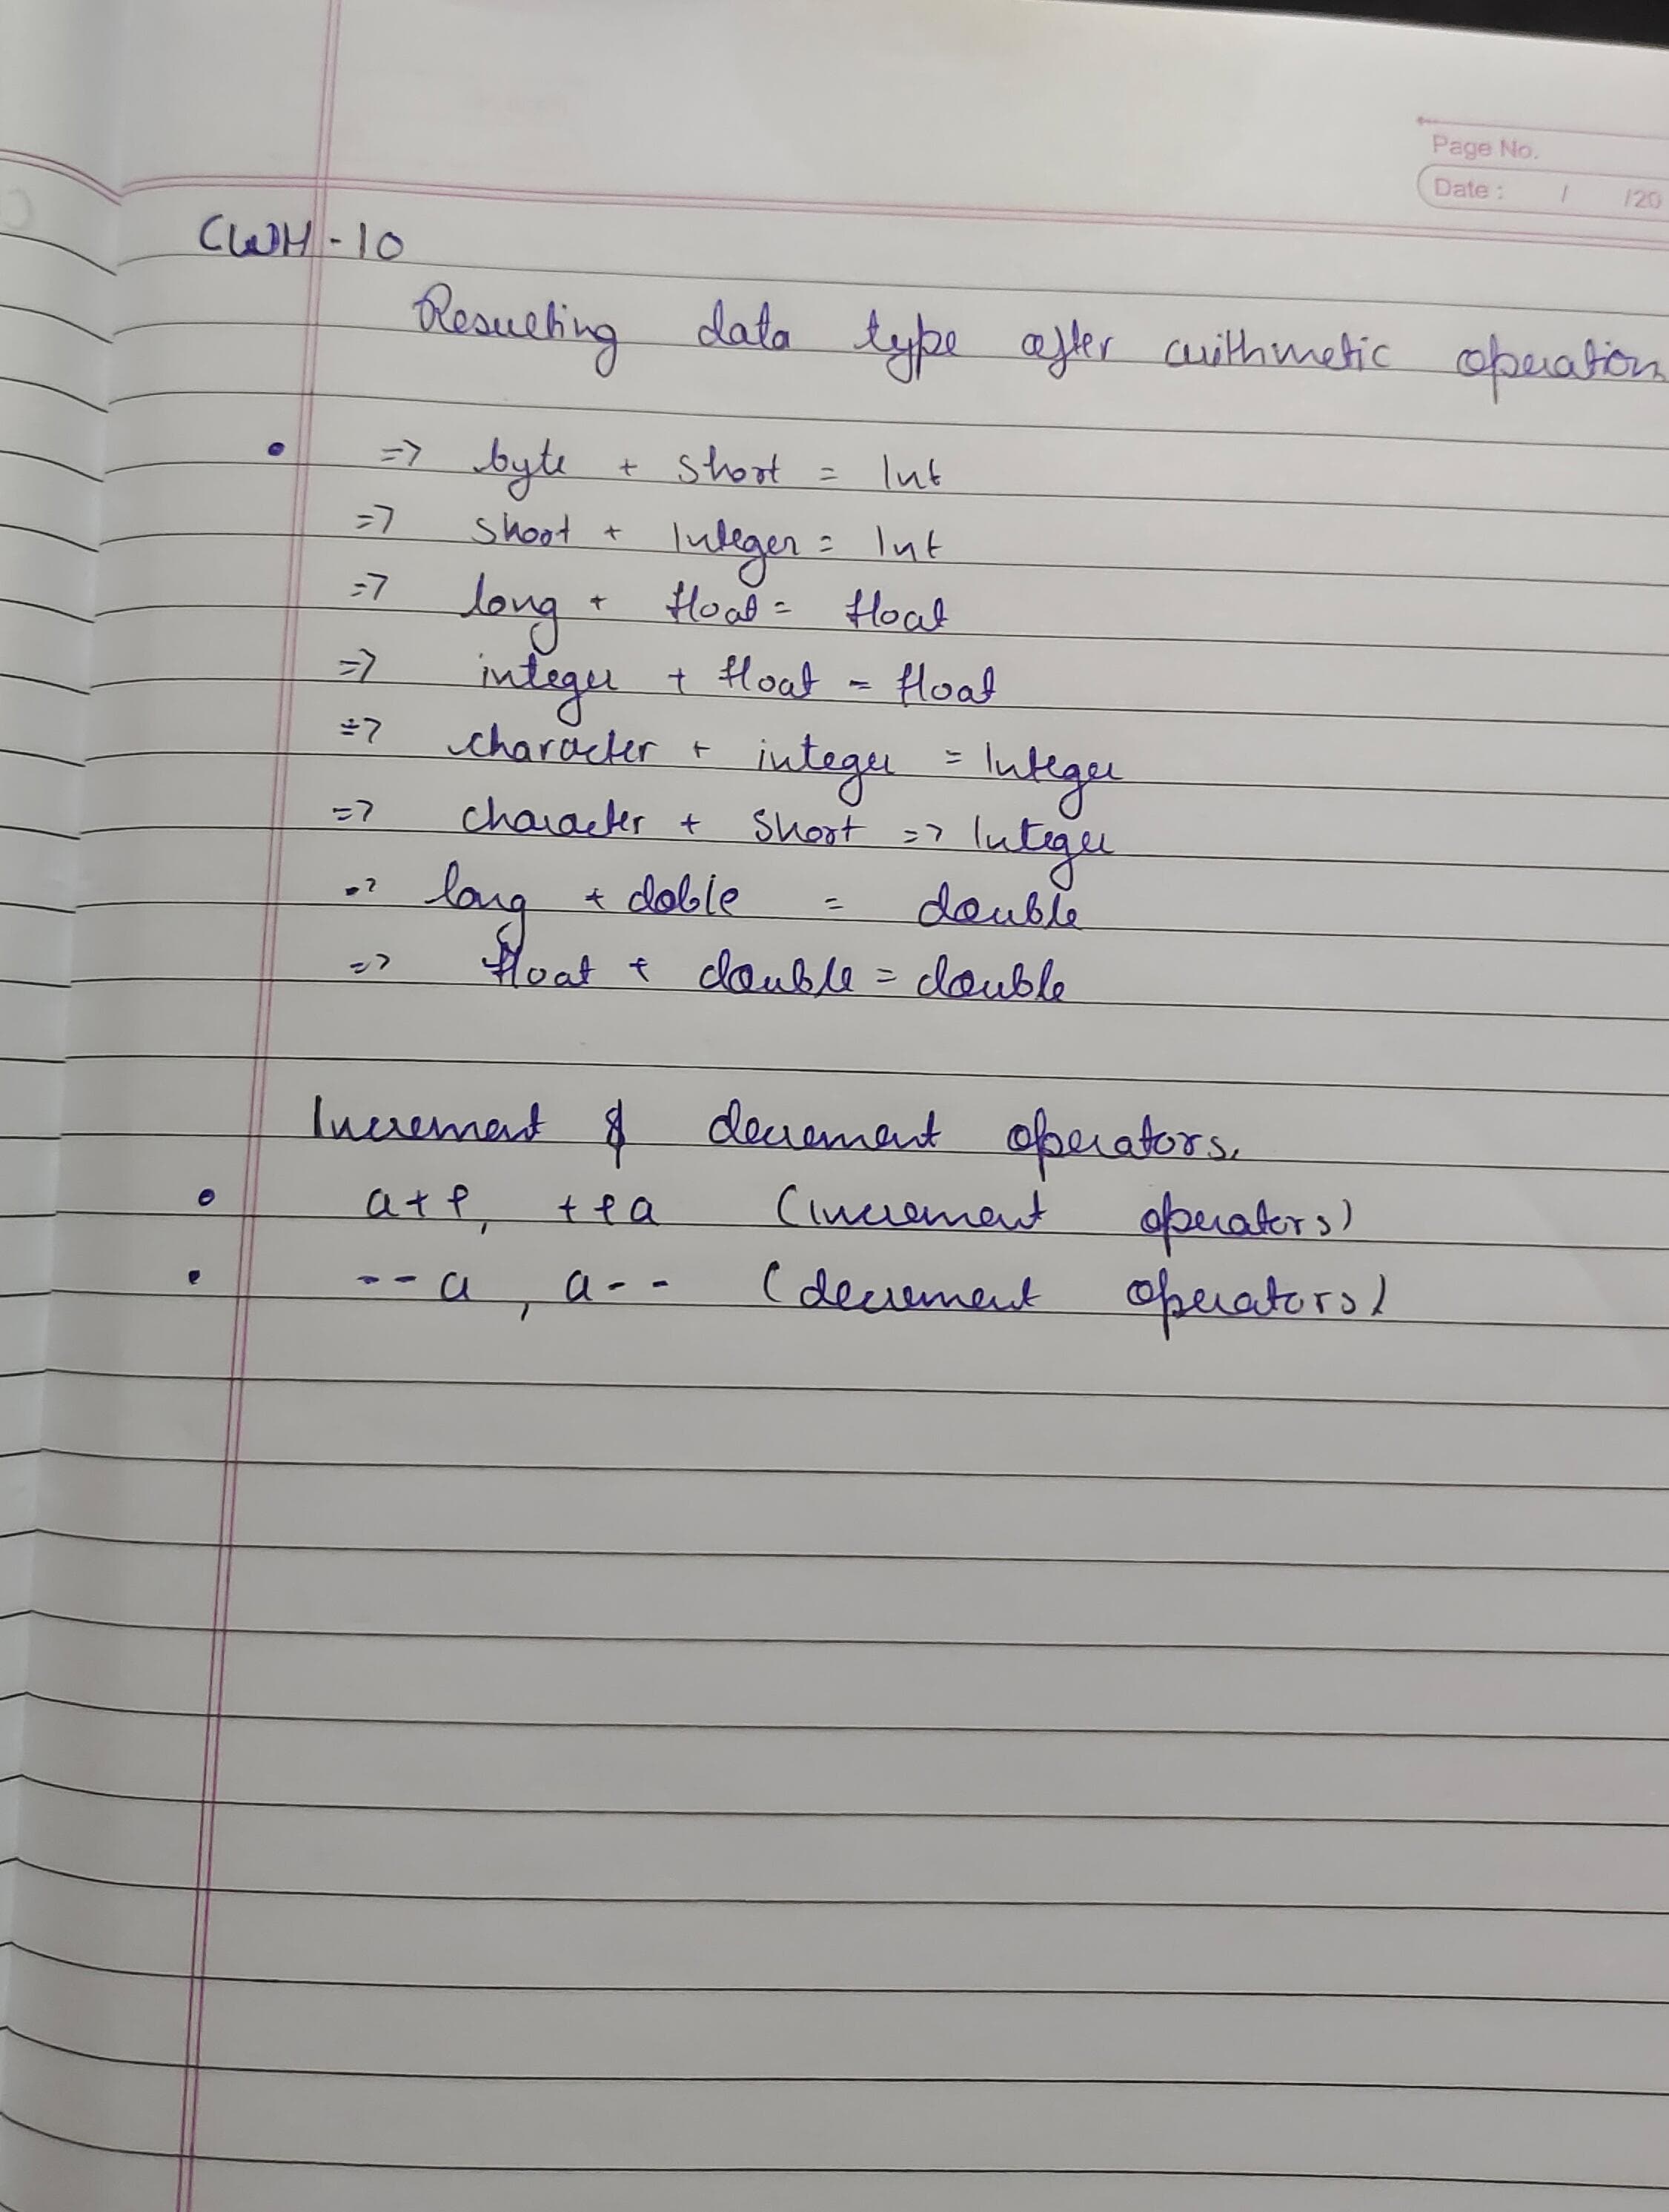 Page No.
Date: / /20
CWH-10
Resulting data type after arithmetic operation
• => byte + short = Int
=> short + Integer = Int
=> long + float = float
=> integer + float = float
=> character + integer = Integer
=> character + short => Integer
=> long + doble = double
=> float + double = double
Increment & decrement operators.
• a++, ++a (increment operators)
• --a, a-- (decrement operators)